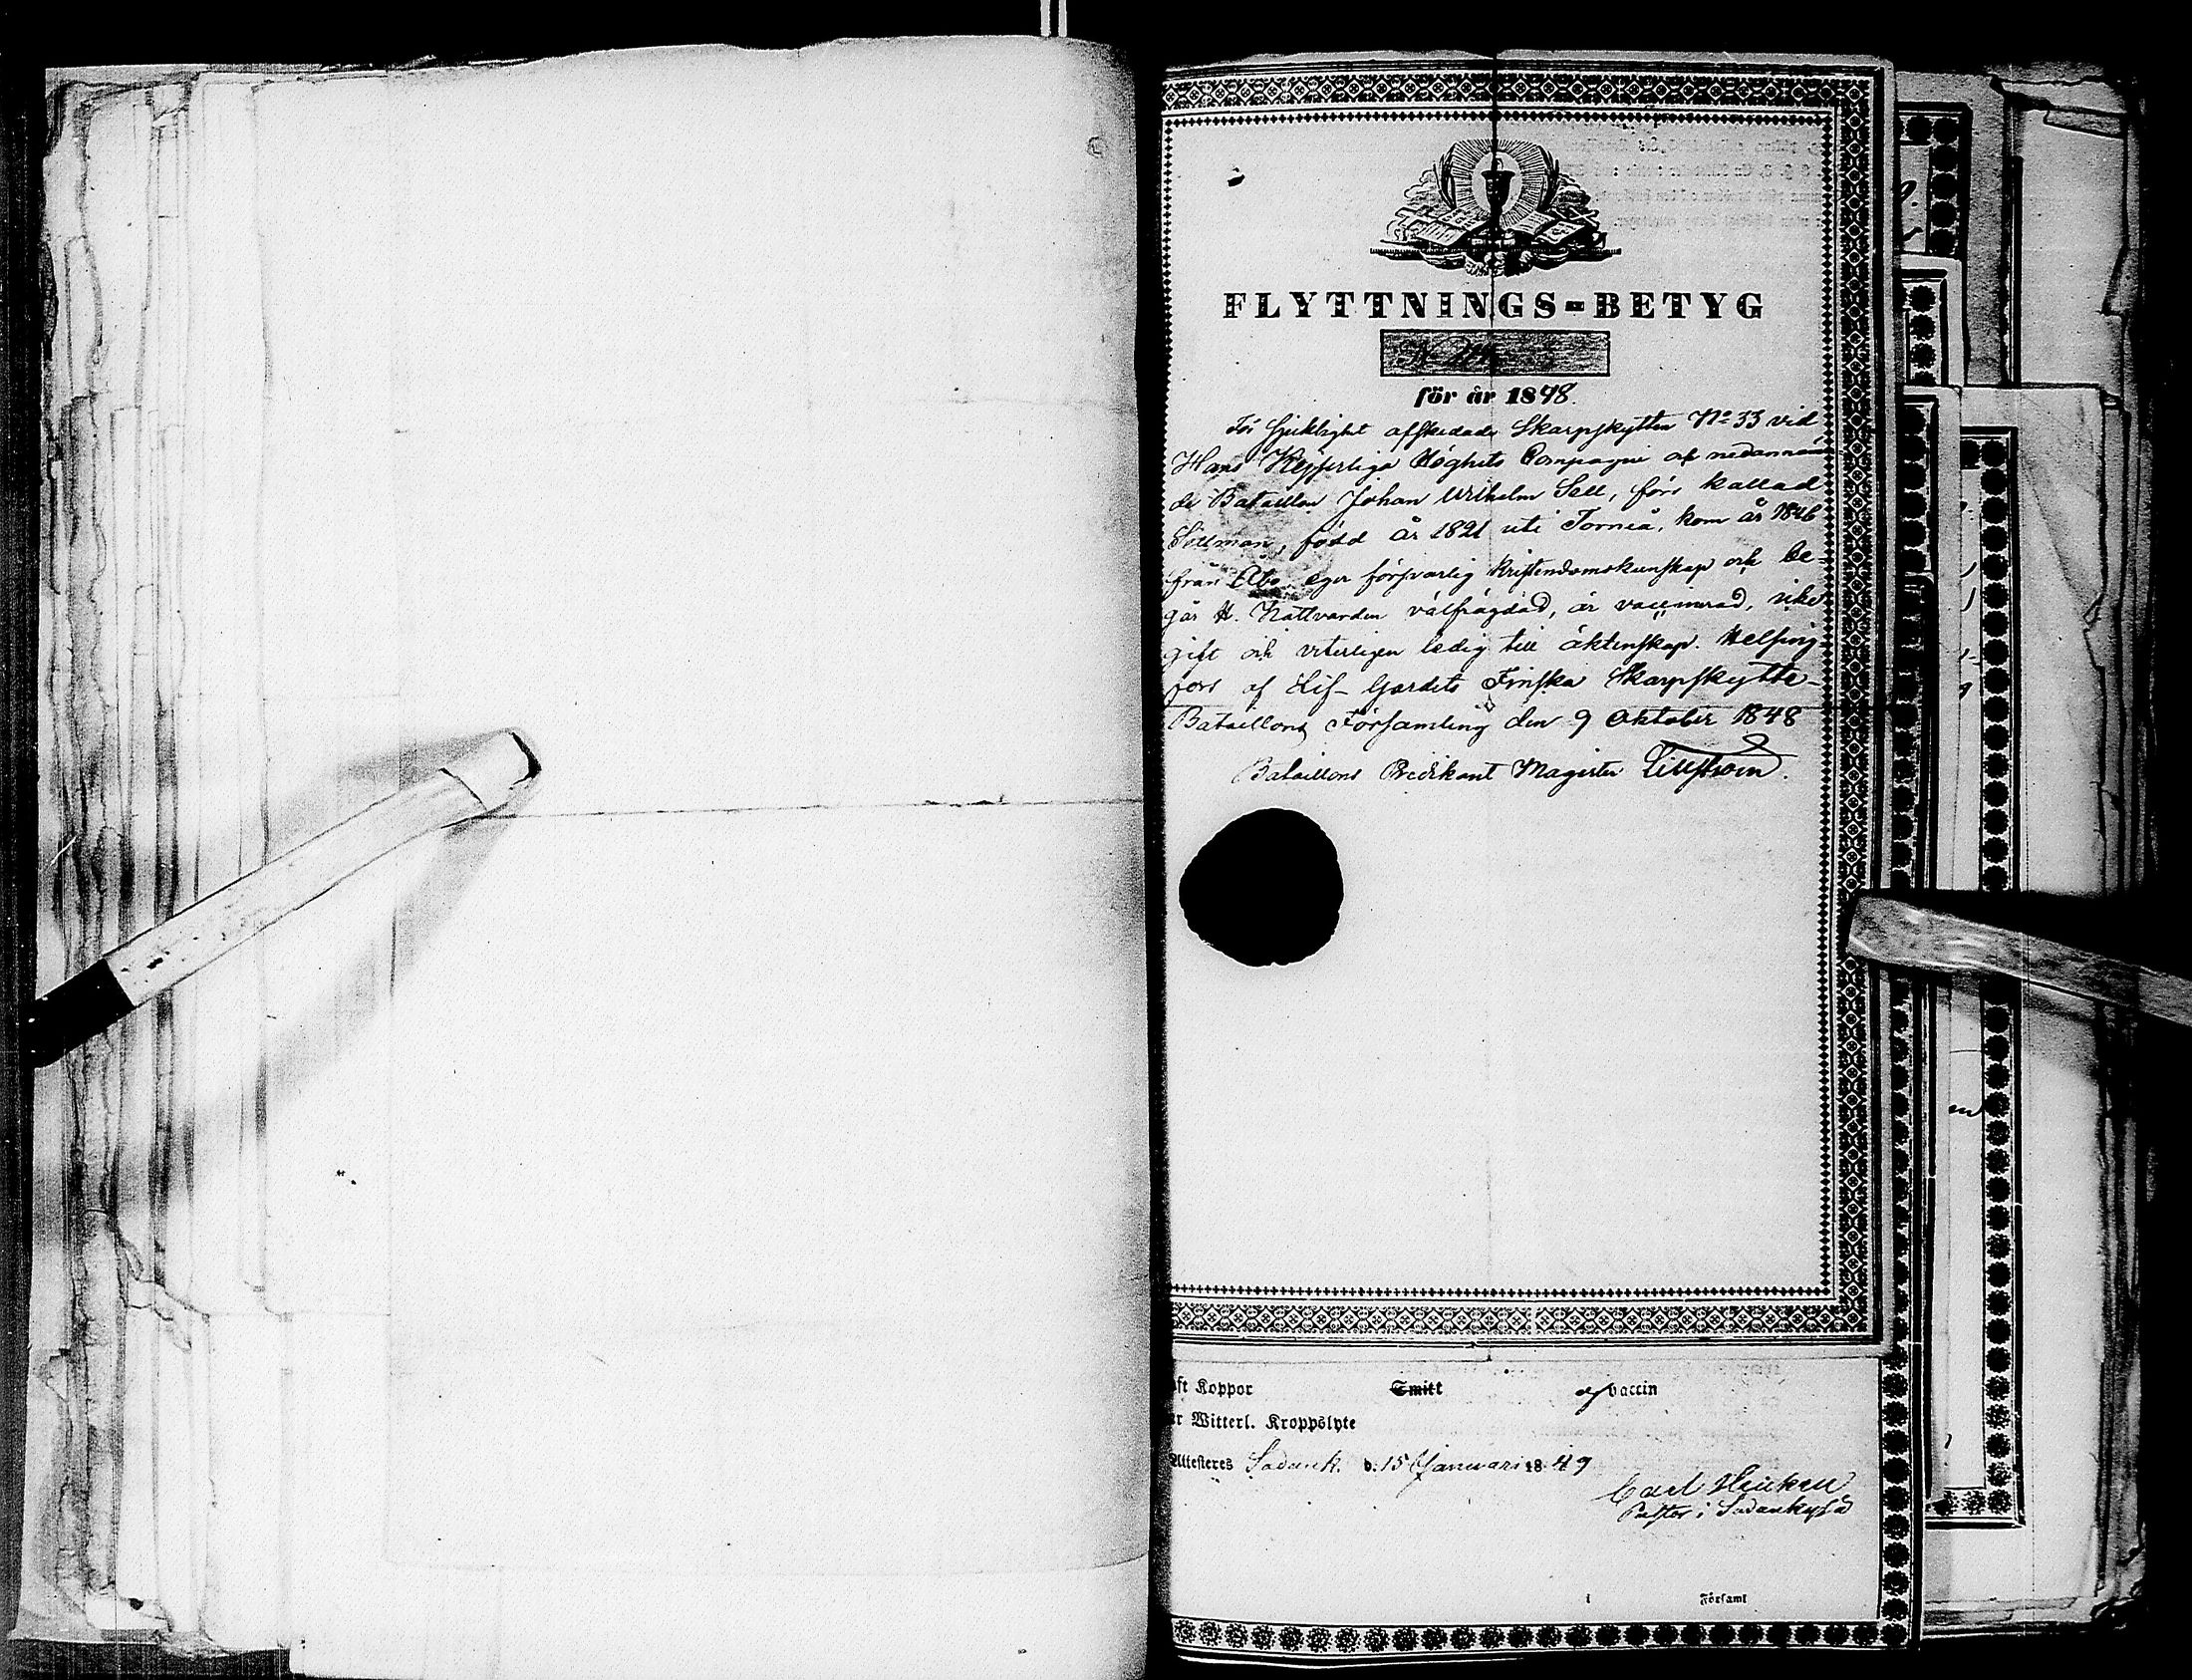 FLYTTNINGS-BETYG
för år 1848.
För sjuklighet afskedade Skarpskytten No 33 vid
Hans Kejserliga Höghets Compagnie af nedannäm
de Bataillon Johan Wilhelm Sell, förr kallad
Sellman, född år 1821 uti Torneå, kom år 1846
från Åbo, eger försvarlig kristendomskunskap och be-
går H. Nattvarden välfrägdad, är vaccinerad, icke
gift och veterligen ledig till äktenskap. Helsing-
fors af Lif-Gardets Finska Skarpskytte-
Bataillons Församling den 9 Oktober 1848
Bataillons Predikant Magister
ft Koppor Smitt af vaccin
r Witterl. Kroppslyte
Attesteres Sodank. d. 15 Januari 1849
Carl Heickell
Pastor i Sodankylä
i Församl